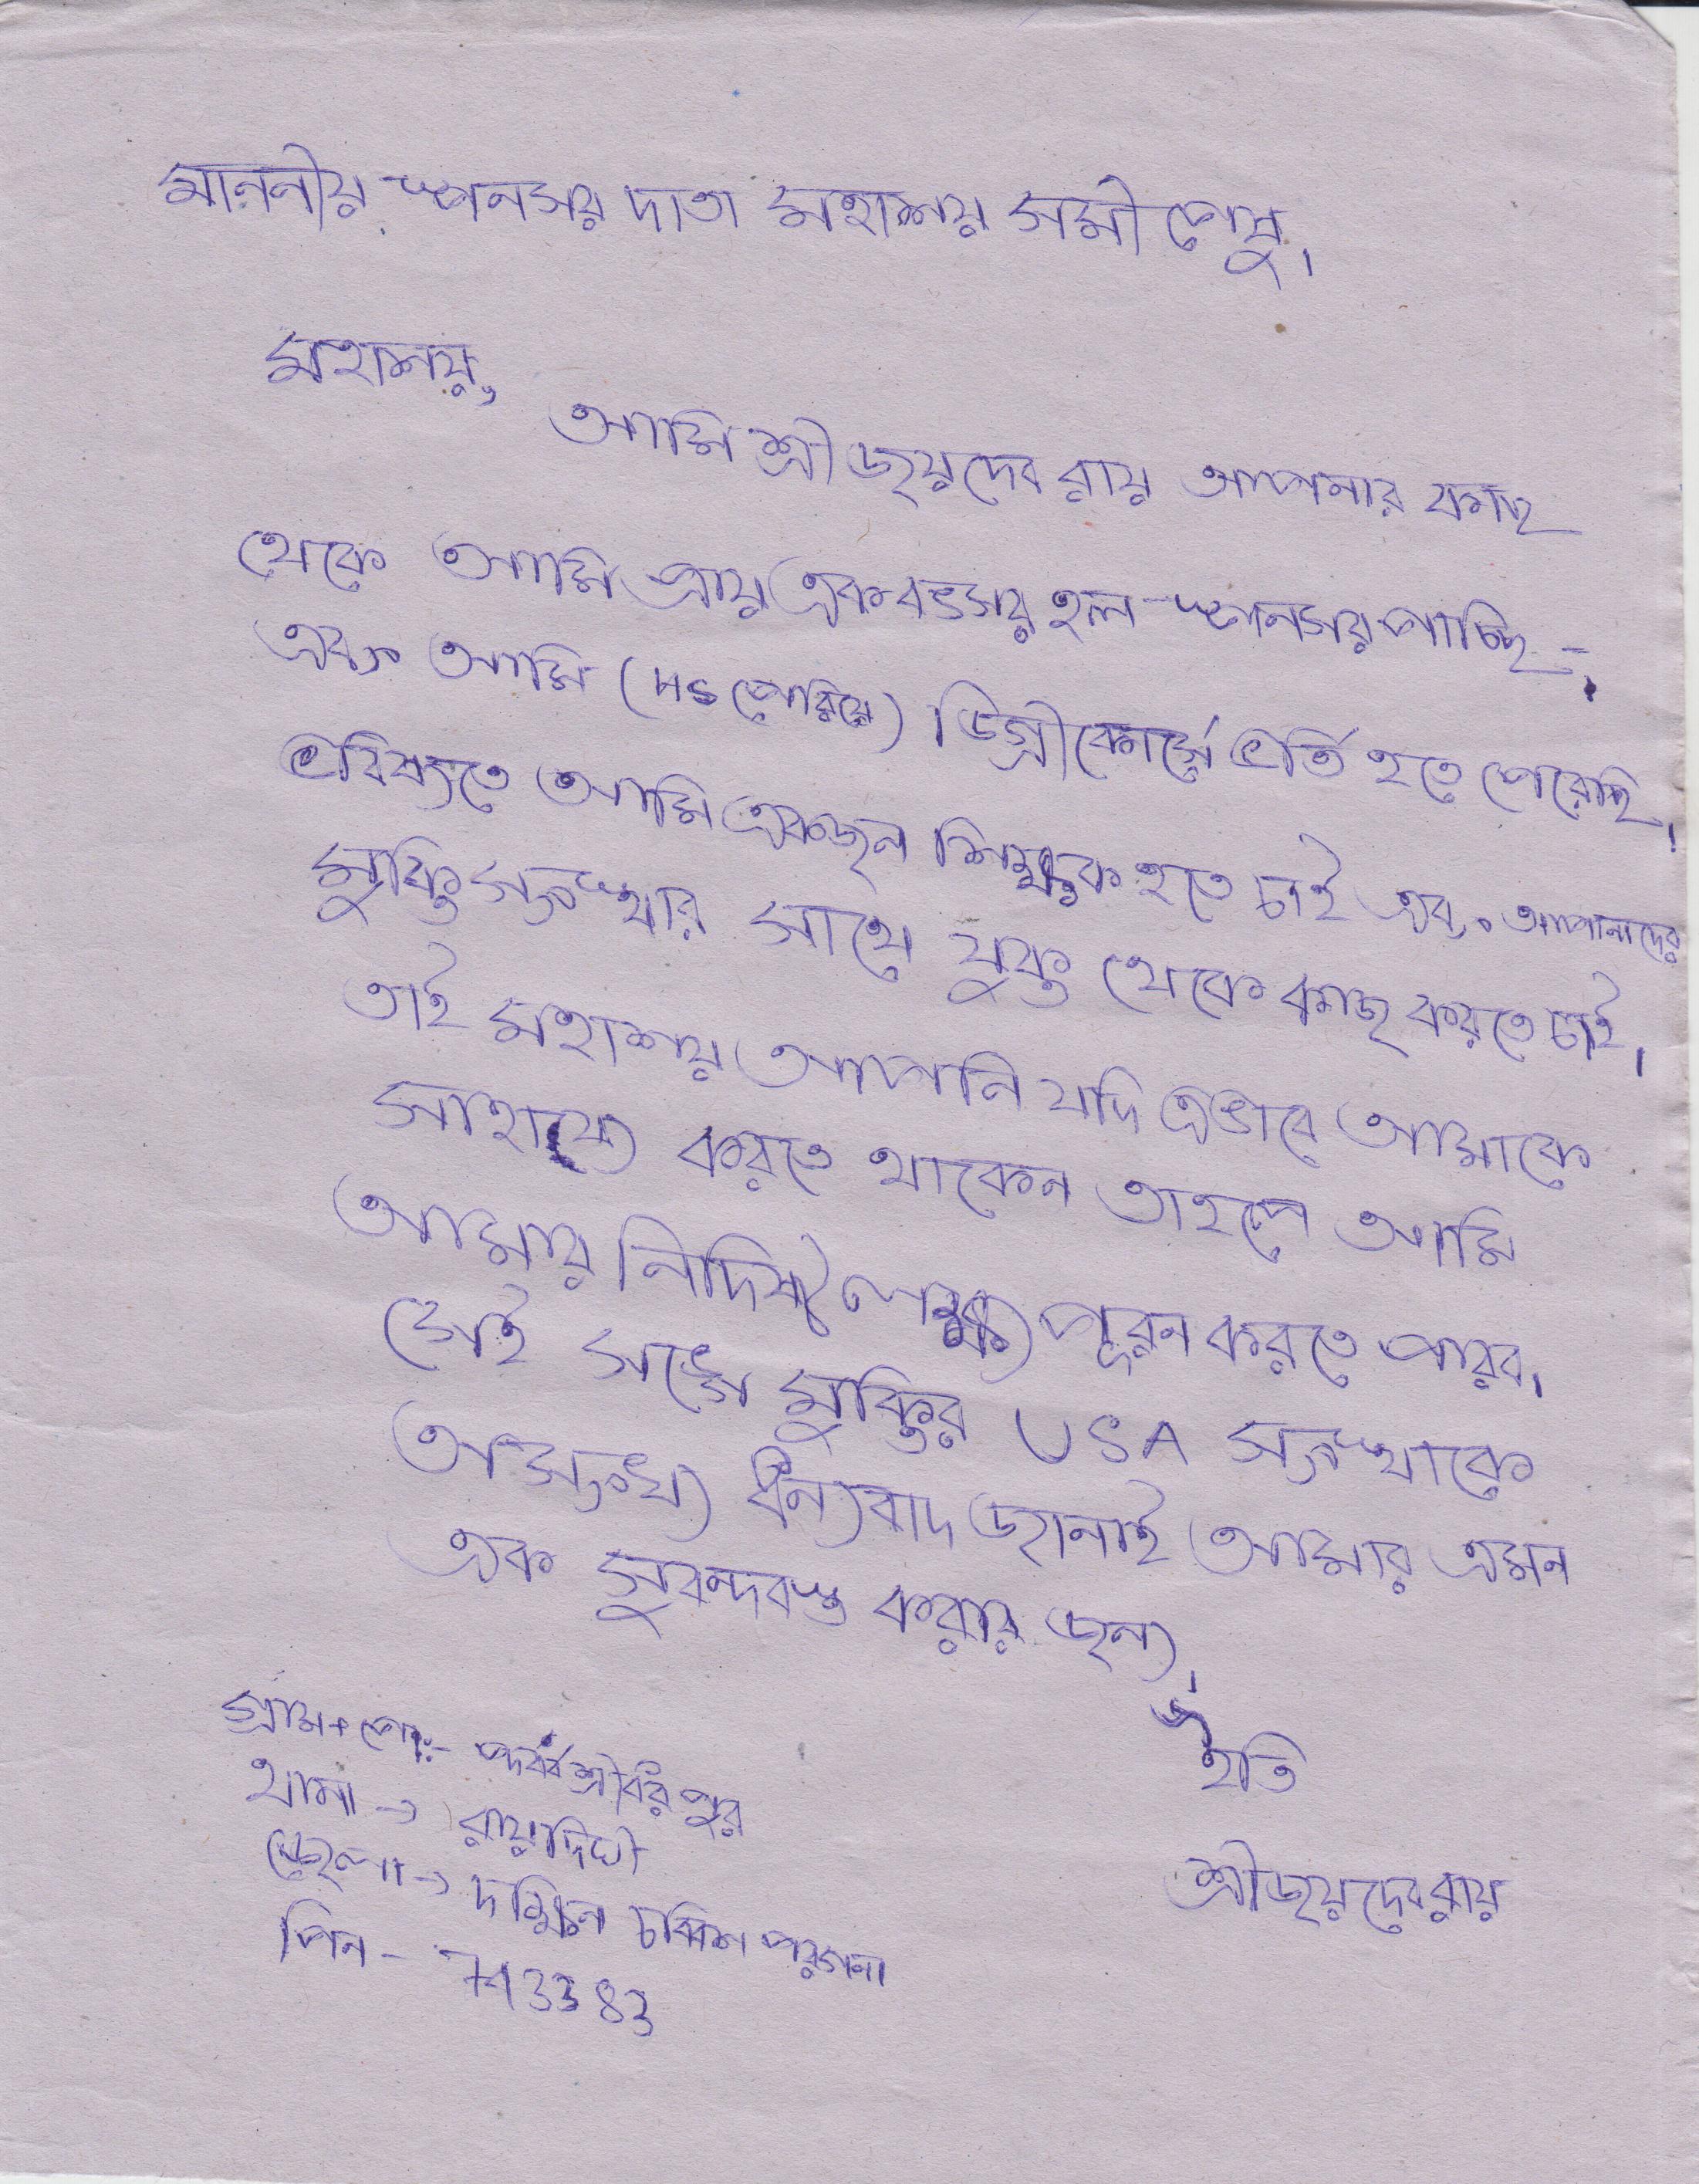 মাননীয় স্পনসর দাতা মহাশয় সমীপেষু।
মহাশয়,
আমি শ্রী জয়দেব রায় আপনার কাছ
থেকে আমি প্রায় এক বৎসর হল স্পনসর পাচ্ছি।
এবং আমি (HS পেরিয়ে) ডিগ্রী কোর্সে ভর্তি হতে পেরেছি।
ভবিষ্যতে আমি একজন শিক্ষক হতে চাই এবং আপনাদের
মুক্তি সংস্থার সাথে যুক্ত থেকে কাজ করতে চাই।
তাই মহাশয় আপনি যদি এভাবে আমাকে
সাহায্যে করতে থাকেন তাহলে আমি
আমার নির্দিষ্ট লক্ষ্য পূরন করতে পারব।
সেই সঙ্গে মুক্তির USA সংস্থাকে
অসংখ্য ধন্যবাদ জানাই আমার এমন
এক সুবন্দবস্ত করার জন্য।
ইতি
শ্রী জয়দেব রায়
গ্রাম+পোঃ- পূর্বশ্রীধরপুর
থানা → রায়দিঘী
জেলা → দক্ষিন চব্বিশ পরগনা
পিন - 743383